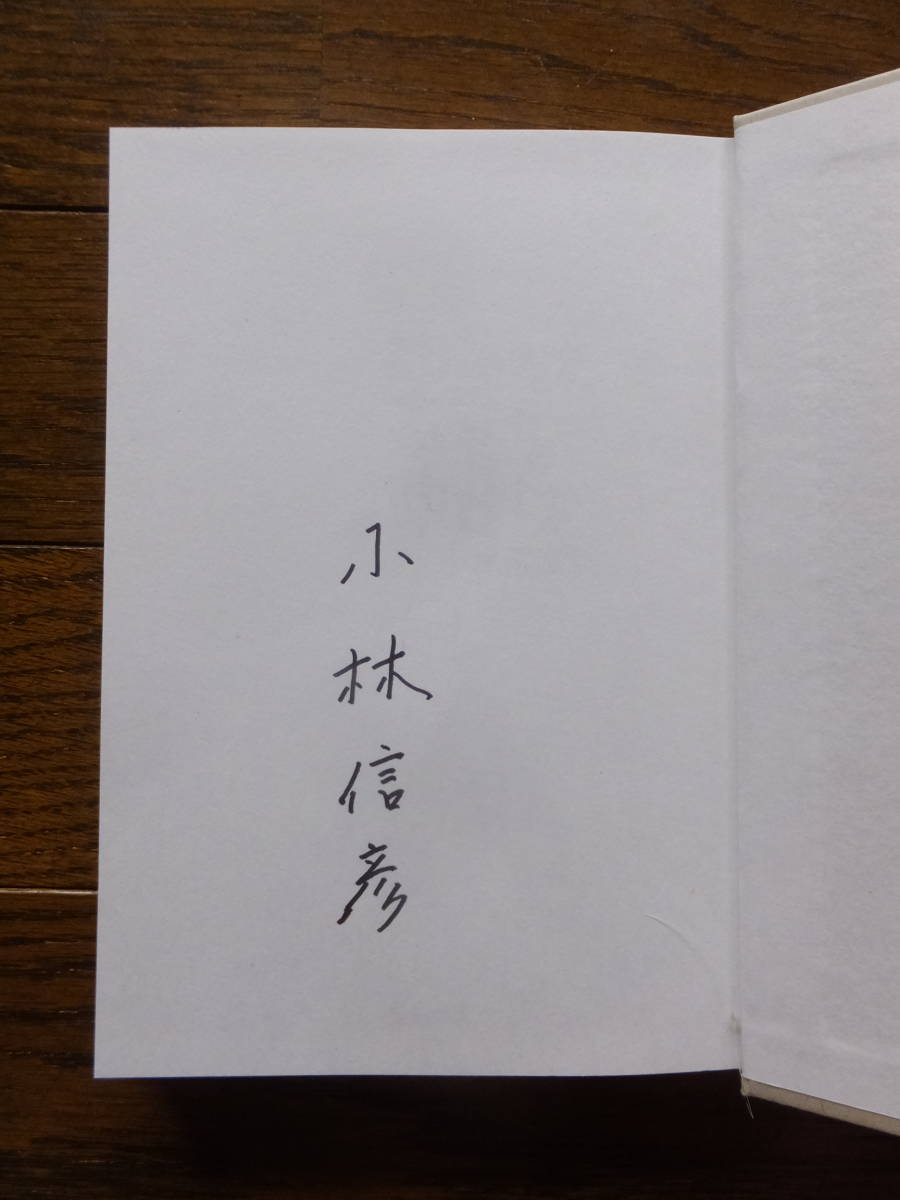 小林信彦